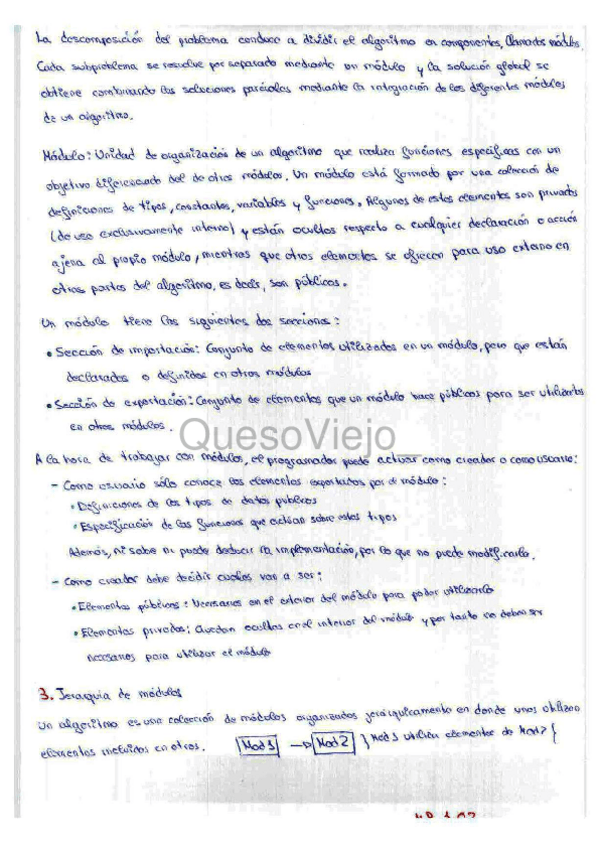 La descomposición del problema conduce a dividir el algoritmo en componentes, llamados módulos.
Cada subproblema se resuelve por separado mediante un módulo y la solución global se
obtiene combinando las soluciones parciales mediante la integración de los diferentes módulos
de un algoritmo.
Módulo: Unidad de organización de un algoritmo que realiza funciones específicas con un
objetivo diferenciado del de otros módulos. Un módulo está formado por una colección de
definiciones de tipos, constantes, variables y funciones. Algunos de estos elementos son privados
(de uso exclusivamente interno) y están ocultos respecto a cualquier declaración o acción
ajena al propio módulo, mientras que otros elementos se ofrecen para uso externo en
otras partes del algoritmo, es decir, son públicos.
Un módulo tiene las siguientes dos secciones:
• Sección de importación: Conjunto de elementos utilizados en un módulo, pero que están
declarados o definidos en otros módulos
• Sección de exportación: Conjunto de elementos que un módulo hace públicos para ser utilizados
en otros módulos.
QuesoViejo_
A la hora de trabajar con módulos, el programador puede actuar como creador o como usuario:
- Como usuario sólo conoce los elementos exportados por el módulo:
• Definiciones de los tipos de datos públicos
• Especificación de las funciones que actúan sobre estos tipos
Además, ni sabe ni puede deducir la implementación, por lo que no puede modificarla.
- Como creador debe decidir cuales van a ser:
• Elementos públicos: Necesarios en el exterior del módulo para poder utilizarlo
• Elementos privados: Quedan ocultos en el interior del módulo y por tanto no deben ser
necesarios para utilizar el módulo
3. Jerarquía de módulos
Un algoritmo es una colección de módulos organizados jerárquicamente en donde unos utilizan
elementos incluidos en otros. Mod 1 → Mod 2 } Mod 1 utiliza elementos de Mod 2 {